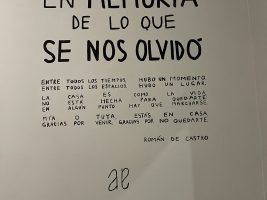 EN MEMORIA
DE LO QUE
SE NOS OLVIDÓ
ENTRE TODOS LOS TIEMPOS, HUBO UN MOMENTO.
ENTRE TODOS LOS ESPACIOS, HUBO UN LUGAR.
LA CASA ES COMO LA VIDA
NO ESTÁ HECHA PARA QUEDARTE
EN ALGÚN PUNTO HAY QUE MARCHARSE
MÍA O TUYA ESTÁS EN CASA
GRACIAS POR VENIR, GRACIAS POR NO QUEDARTE.
ROMÁN DE CASTRO